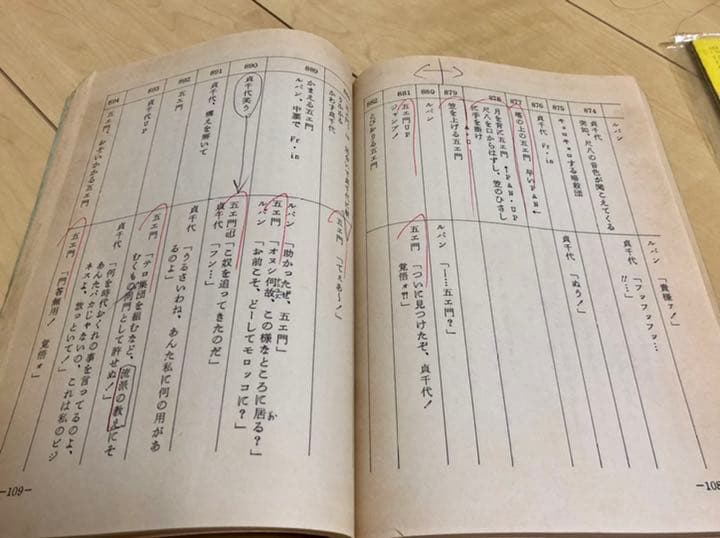 ルパン
ルパン「貴様ァ!」
874
貞千代
貞千代「フッフッフッ…
突如、尺八の音色が聞こえてくる
!!…」
875
キョロキョロする暗殺団
876
貞千代 Fr・in
貞千代「ぬう!」
877
塔の上の五ェ門 早いPAN←
878
月を背に五ェ門 ↑PAN・UP
尺八を口からはずし、笠のひさし
に手を掛け
879
笠を上げる五ェ門
880
ルパン
ルパン「!…五ェ門?」
881
五ェ門UP
五ェ門「ついに見つけたぞ、貞千代!
ジャンプ!
覚悟ォ!!」
882
とびおりる五ェ門
—108
かわす貞千代
五ェ門「てぇあ〜ッ!」
かまえる五ェ門
889
ルパン、中業で Fr・in
ルパン「助かったぜ、五ェ門」
五ェ門「オヌシ何故、この様なところに居る?」
ルパン「お前こそ、どーしてモロッコに?」
890
貞千代笑う
五ェ門「此奴を追ってきたのだ」
貞千代「フン…」
891
貞千代、構えを解いて
貞千代「うるさいわね、あんた私に何の用があ
るのよ」
892
五ェ門
五ェ門「テロ集団を組むなど、流派の教えにそ
むくもの、同門として許せぬ!」
893
貞千代UP
貞千代「何を時代おくれの事を言ってるのよ、
あんたバカじゃないの、これは私のビジ
ネスよ、放っといて!」
894
五ェ門、おそいかかる五ェ門
五ェ門「問答無用! 覚悟ォ」
—109—